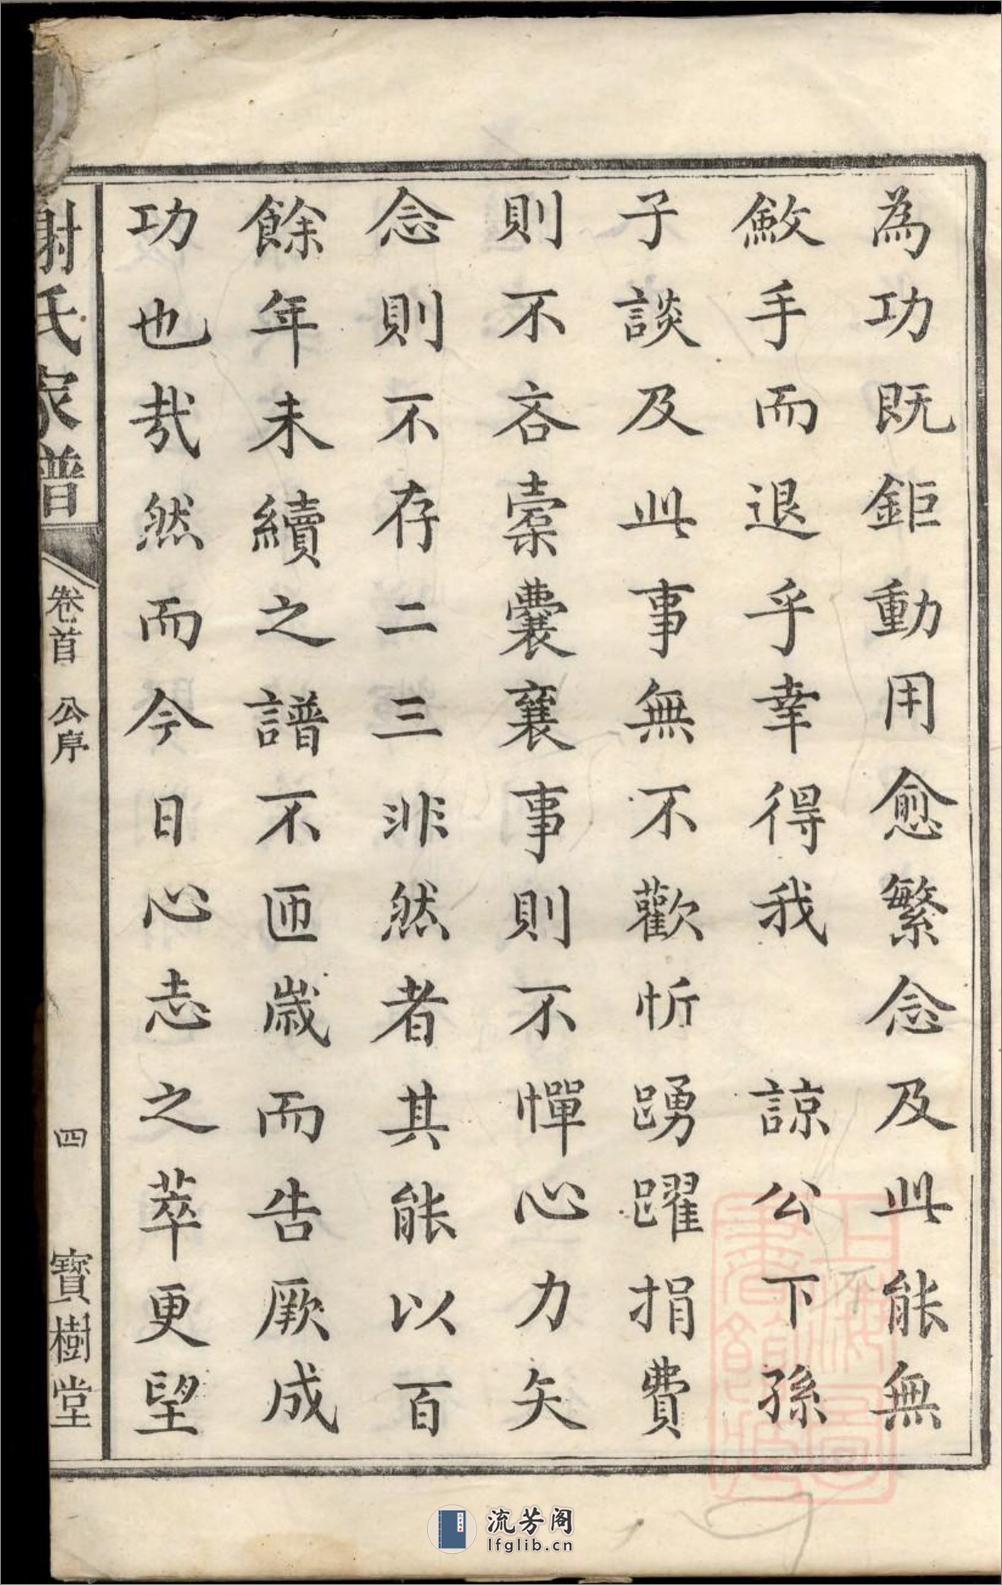 為功既鉅動用愈繁念及此能無
斂手而退乎幸得我　諒公下孫
子談及此事無不歡忻踴躍捐費
則不吝橐囊襄事則不憚心力矢
念則不存二三非然者其能以百
餘年未續之譜不匝歲而告厥成
功也哉然而今日心志之萃更望
謝氏家譜
卷首
公序
四
寶樹堂
上海圖書館藏
流芳阁
lfglib.cn